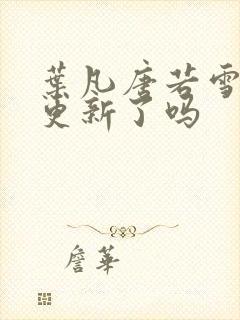 葉凡唐若雪
更新了吗
詹華